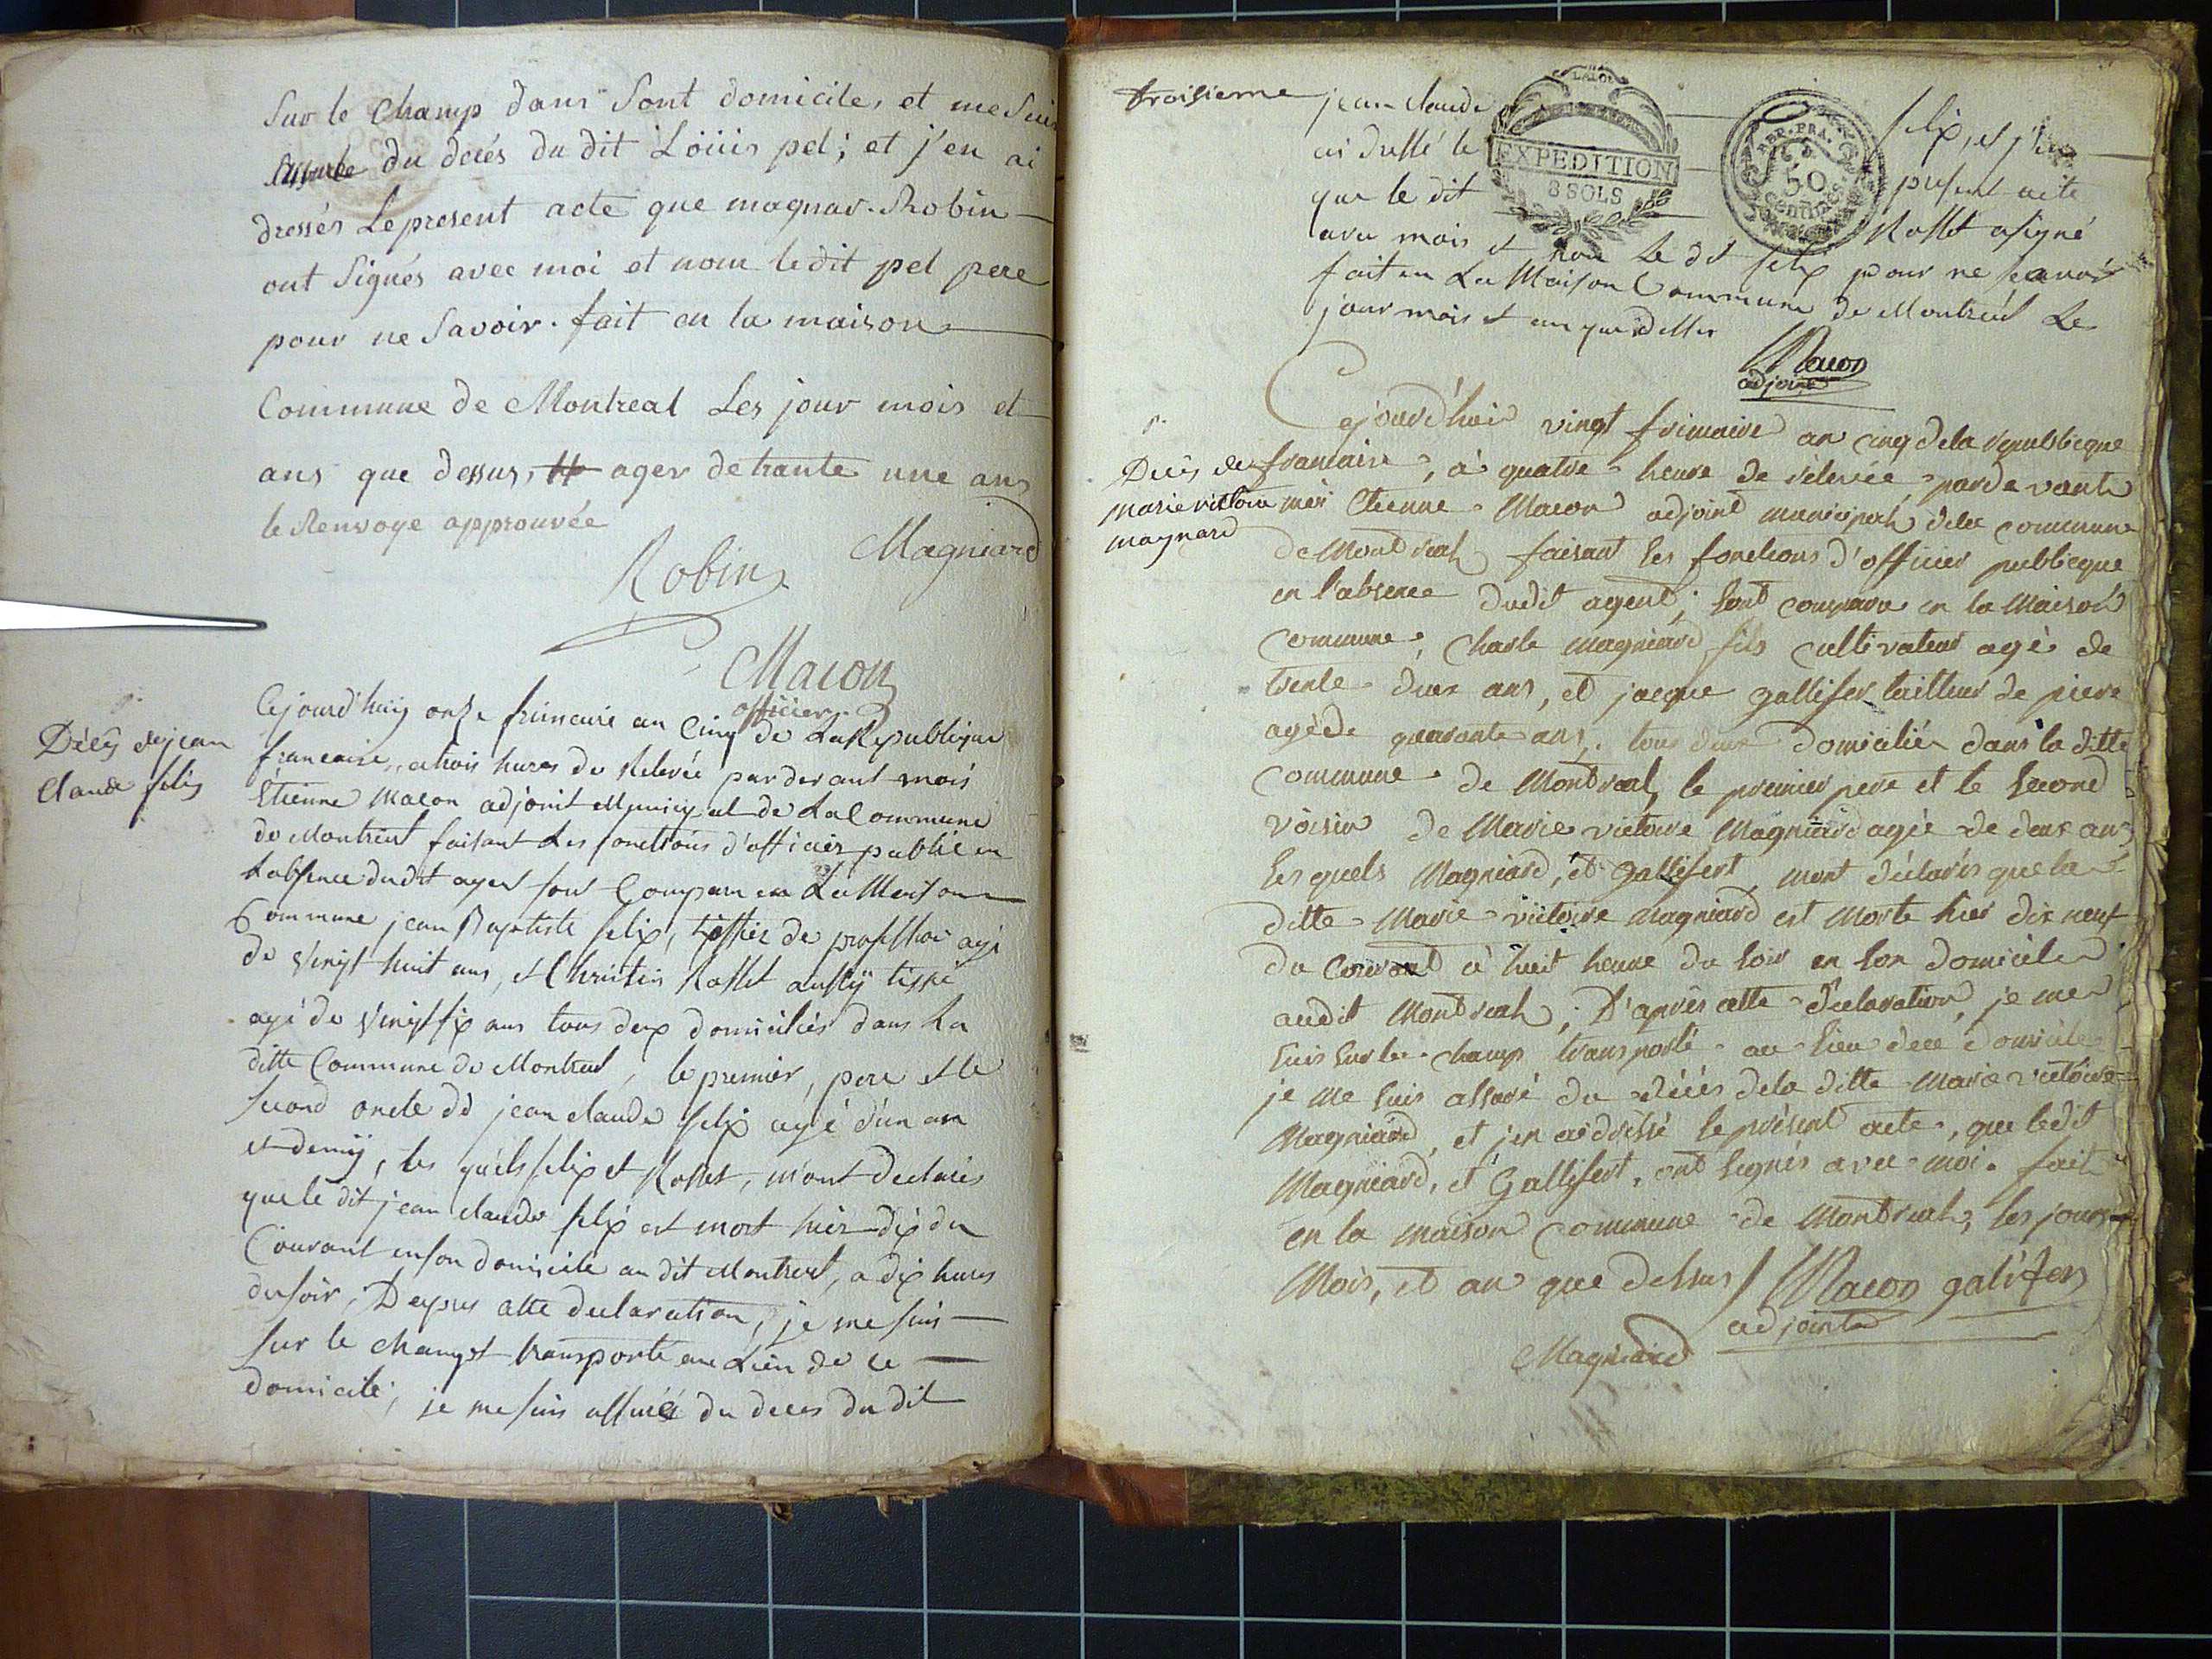 Sur le Champ dans Sont domicile, et me Suis
assurée du decés du dit Loüis pel; et j'en ai
dressés Le present acte que magnar. Robin
ont Signés avec moi et nom le dit pel pere
pour ne Savoir. fait en la maison
Commune de Montreal Les jour mois et
ans que dessus, # ager de trante une ans
le Renvoye approuvée
Robin Magniard
Macon
officier
Décés de jean
Claude felix
Cejourd'huy onze frimaire an Cinq de La Republique
francaise, atrois hures de Relevée par devant mois
Etienne Macon adjoint Municipal de La Commune
de Montreal faisant Les fonctions d'officier public en
Labsence dudit agent sont Comparu en La Maison
Commune jean Baptiste felix, tissier de profession agé
de vingt huit ans, et Christin Rosset aussÿ tissié
agé de vingt six ans tous deux domiciliés dans La
ditte Commune de Montreal, le premier, pere et le
second oncle de jean claude felix agé d'un an
et demÿ, les quels felix et Rosset, m'ont declarés
que le dit jean claude felix est mort hier dix du
Courant en son domicile au dit Montreal, a dix hures
du soir, Depres cette declaration, je me suis
sur le champt transporté au Lieu de ce
domicile, je me suis assuré du deces du dit
troisieme jean claude felix, et j'en
ai dressé le present acte
que le dit Rosset a signé
avec mois et non Le dit felix pour ne scavoir
fait en La Maison Commune de Montreal Les
jour mois et an que dessus
Macon
adjoint
EXPEDITION
8 SOLS
REP. FRA.
50
Centimes
Décés de
marie victoire
magnard
Cejourd'huis vingt frimaire an cinq dela republicque
francaise, à quatre heure de rélevée, pardevant
moi Etienne Macon adjoint municipal dela commune
de Montreal faisant les fonctions d'officier publicque
en l'absence dudit agent; sont comparu en la Maison
commune, Charle magniard fils cultivateur agé de
trente deux ans, et jacque gallifer tailleur de piere
agé de quarante ans, tous deux domicilié dans la ditte
commune de Montreal, le premier pere et le second
voisin de Marie victoire Magniard agée de deux ans
les quels Magniard, et Gallifert, mont déclarés que la
ditte Marie victoire magniard est Morte hier dix neuf
du Courant à huit heure du soir en son domicile
audit Montreal; D'aprés cette déclaration, je me
suis sur le champ transporté au lieu de ce domicile
je me suis assuré du décés dela ditte Marie victoire
Magniard, et j'en ai dréssé le présent acte, que ledit
Magniard, et Gallifert, ont Signés avec moi. fait
en la maison commune de Montreal, les jours
Mois, et an que dessus / Macon galifer
adjoint
Magniard